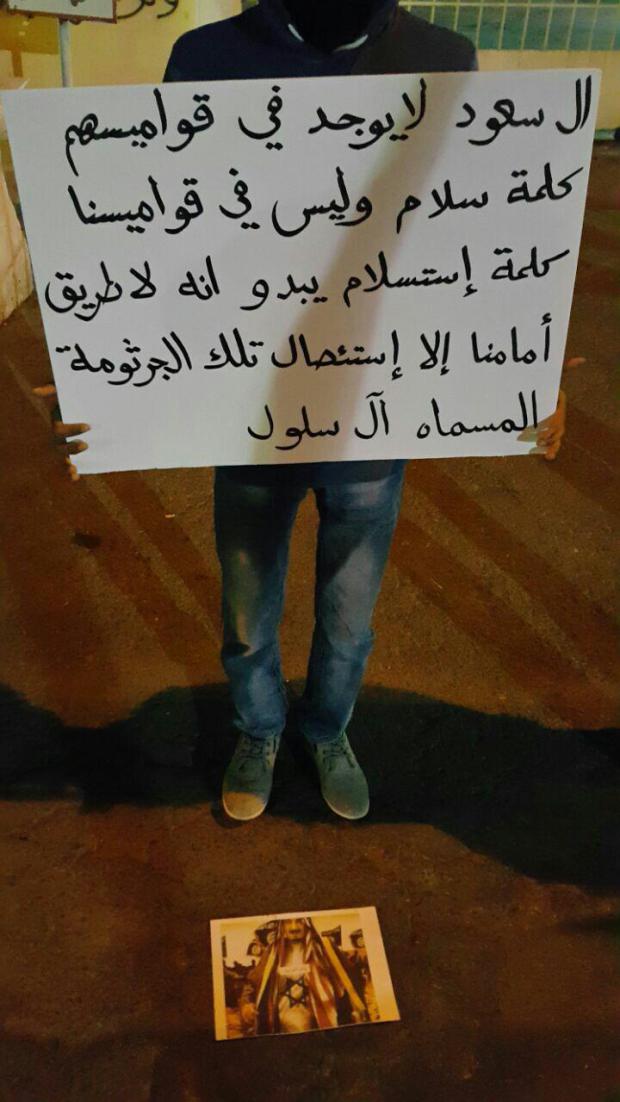 ال سعود لايوجد في قواميسهم
كلمة سلام وليس في قواميسنا
كلمة إستسلام يبدو انه لاطريق
أمامنا إلا إستئصال تلك الجرثومة
المسماه آل سلول